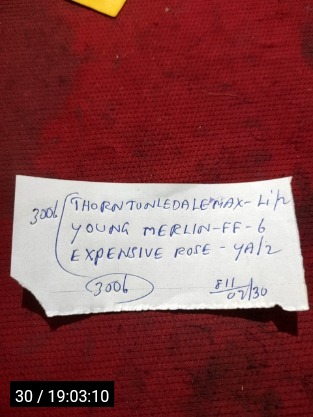 3006 THORNTONLEDALEMAX - Li/2
YOUNG MERLIN - FF - 6
EXPENSIVE ROSE - YA/2
3006
811
02/30
30 / 19:03:10